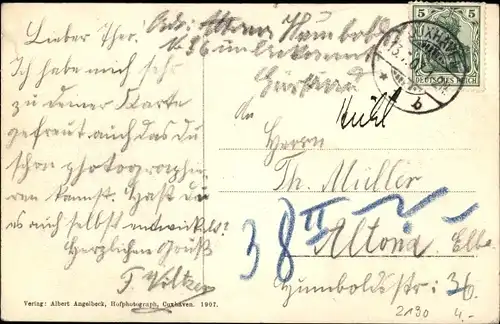 Lieber Theo.
Ich habe mich sehr
zu deiner Karte
gefreut auch das du
schon photographie
ren kannst. Hast du
es auch selbst entwickelt?
Herzlichen Gruß
Adr: Altona Humboldt
No 36 unbekannt
5
DEUTSCHES REICH
CUXHAVEN
b
An
Herrn
Th. Müller
38 II
Altona. Elbe
Humboldtstr: 36.
2130 4,-
Verlag: Albert Angelbeck, Hofphotograph, Cuxhaven. 1907.